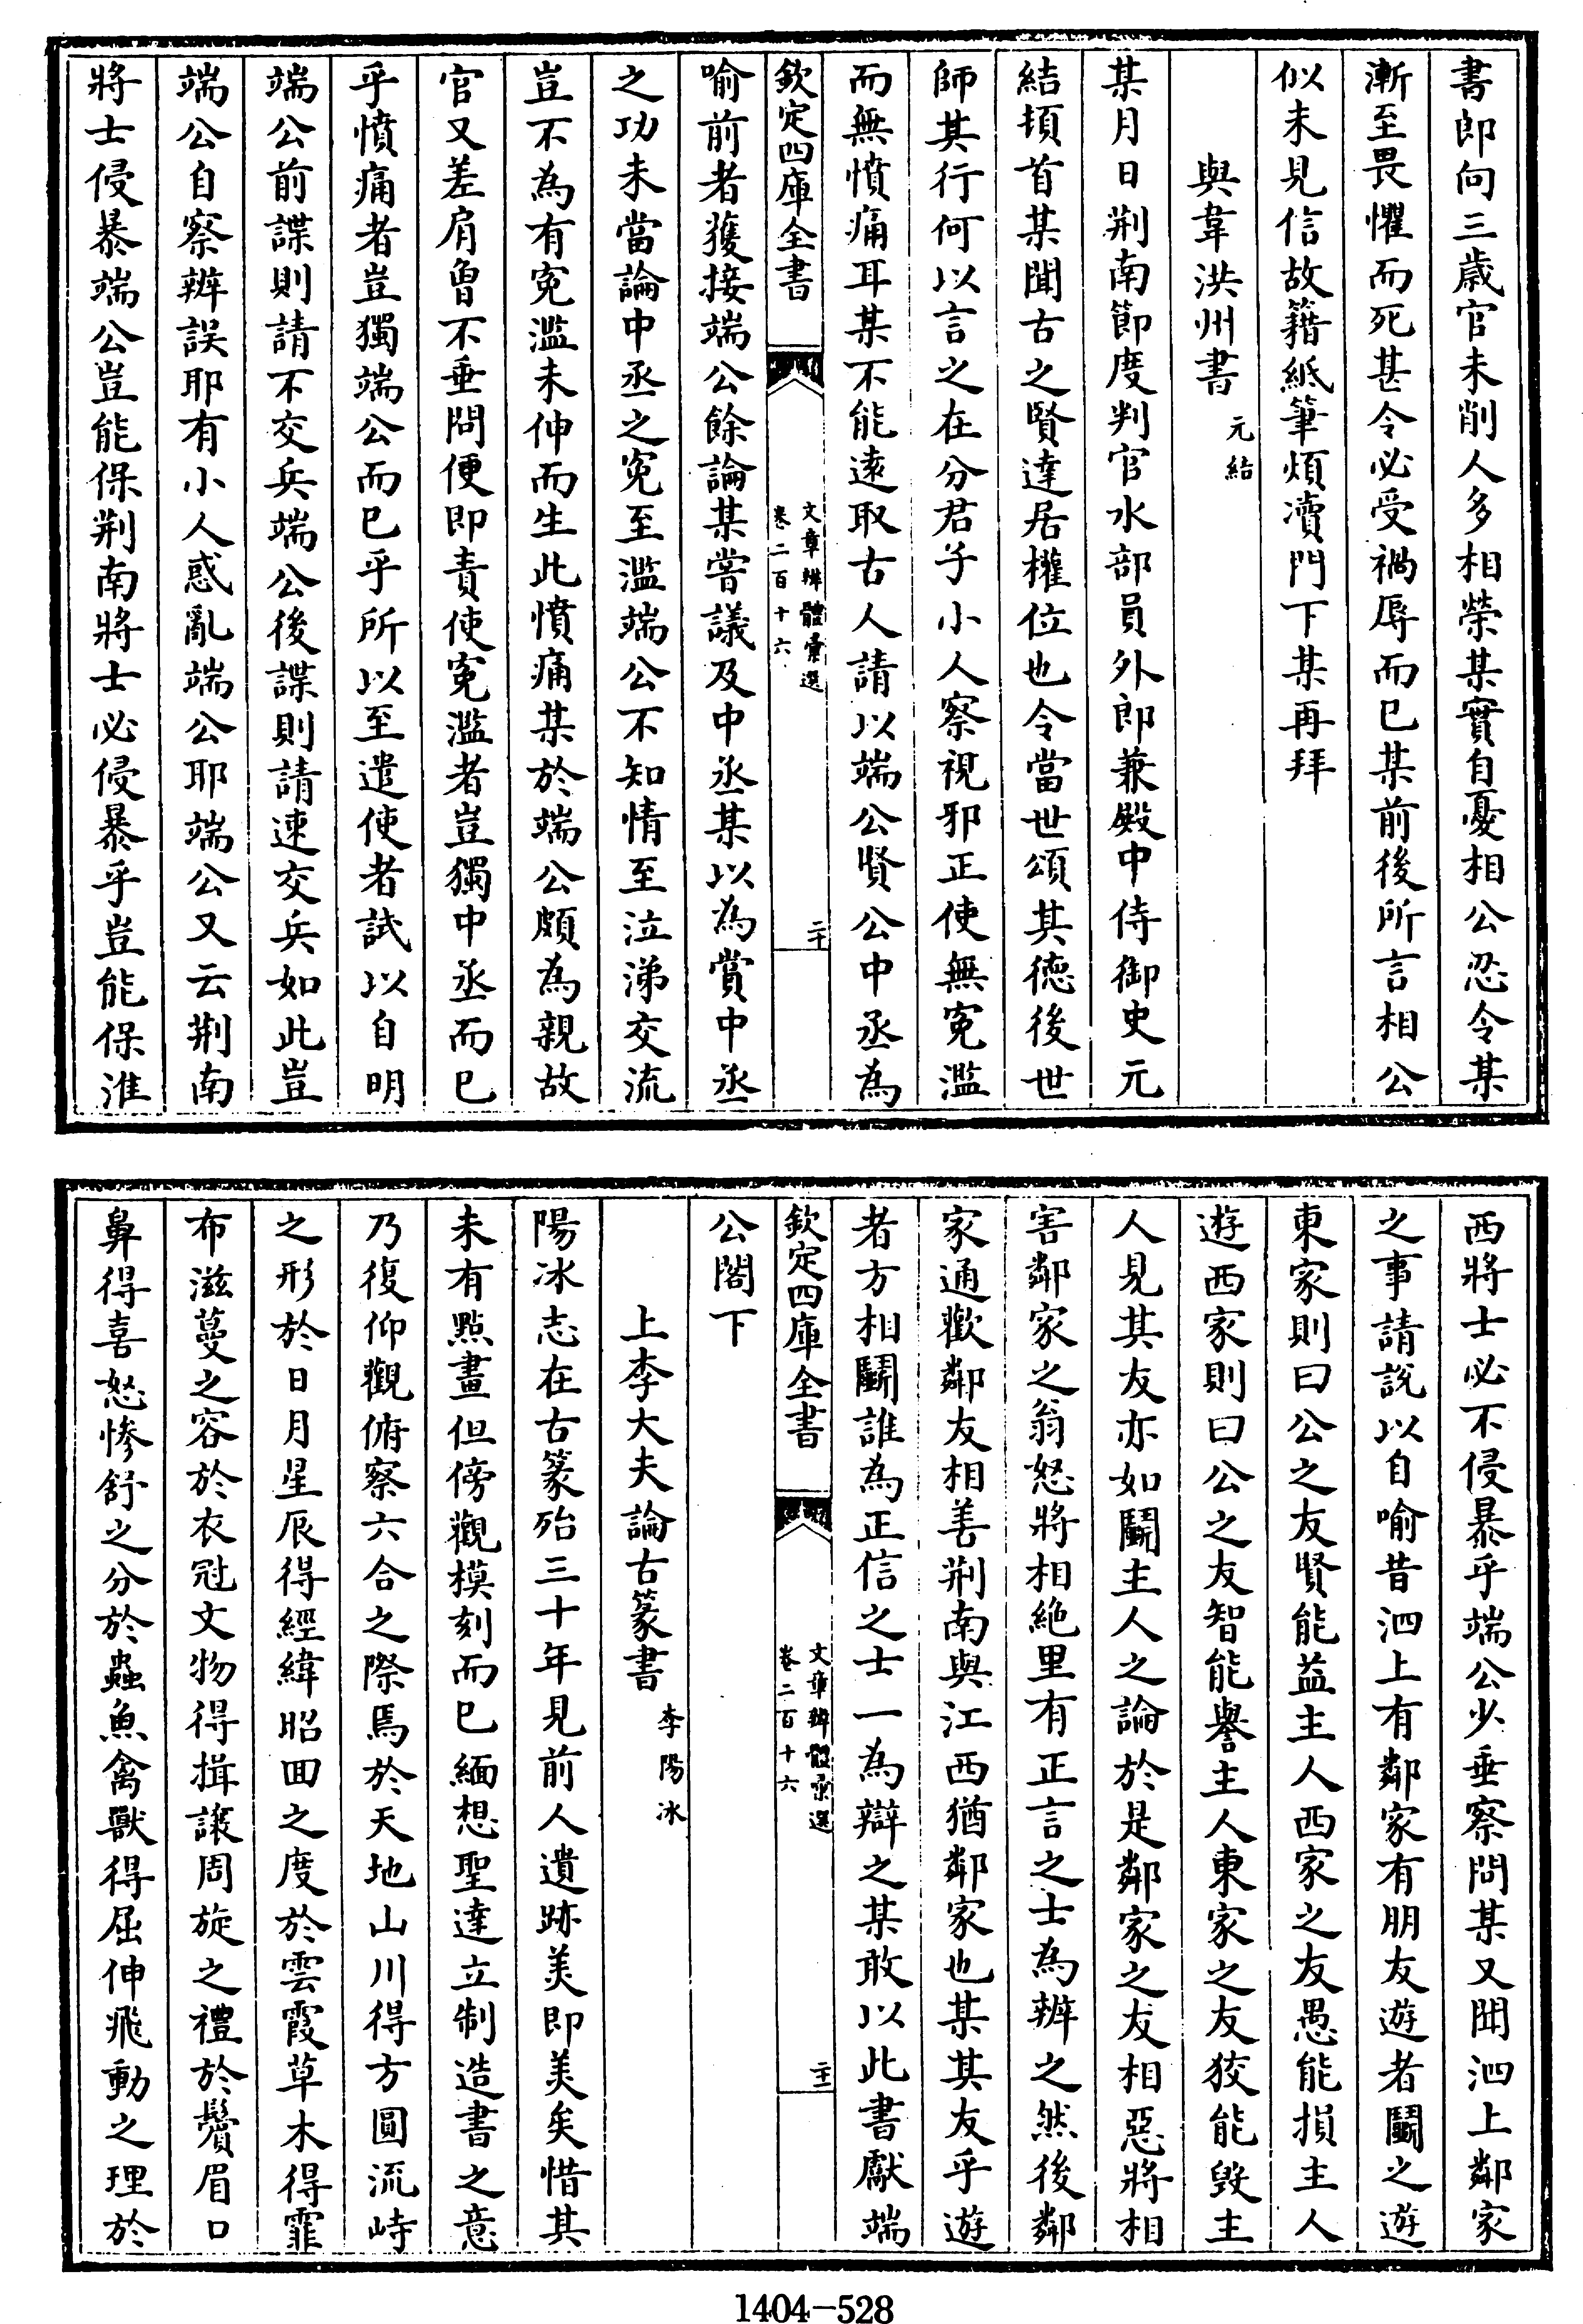 書郎向三歲官未削人多相榮某實自憂相公忍令某
漸至畏懼而死甚令必受禍辱而已某前後所言相公
似未見信故籍紙筆煩瀆門下某再拜
與韋洪州書 元結
某月日荆南節度判官水部員外郎兼殿中侍御史元
結頓首某聞古之賢達居權位也令當世頌其德後世
師其行何以言之在分君子小人察視邪正使無寃濫
而無憤痛耳某不能遠取古人請以端公賢公中丞為
欽定四庫全書 文章辨體彙選 卷二百十六 二十
喻前者獲接端公餘論某嘗議及中丞某以為賞中丞
之功未當論中丞之寃至濫端公不知情至泣涕交流
豈不為有寃濫未伸而生此憤痛某於端公頗為親故
官又差肩曾不垂問便即責使寃濫者豈獨中丞而已
乎憤痛者豈獨端公而已乎所以至遣使者試以自明
端公前諜則請不交兵端公後諜則請速交兵如此豈
端公自察辨誤耶有小人惑亂端公耶端公又云荆南
將士侵暴端公豈能保荆南將士必侵暴乎豈能保淮
西將士必不侵暴乎端公少垂察問某又聞泗上鄰家
之事請説以自喻昔泗上有鄰家有朋友遊者鬭之遊
東家則曰公之友賢能益主人西家之友愚能損主人
遊西家則曰公之友智能譽主人東家之友狡能毀主
人見其友亦如鬭主人之論於是鄰家之友相惡將相
害鄰家之翁怒將相絶里有正言之士為辨之然後鄰
家通歡鄰友相善荆南與江西猶鄰家也某其友乎遊
者方相鬭誰為正信之士一為辯之某敢以此書獻端
欽定四庫全書 文章辨體彙選 卷二百十六 二十一
公閤下
上李大夫論古篆書 李陽冰
陽冰志在古篆殆三十年見前人遺跡美即美矣惜其
未有點畫但傍觀模刻而已緬想聖達立制造書之意
乃復仰觀俯察六合之際焉於天地山川得方圓流峙
之形於日月星辰得經緯昭回之度於雲霞草木得霏
布滋蔓之容於衣冠文物得揖讓周旋之禮於鬢眉口
鼻得喜怒慘舒之分於蟲魚禽獸得屈伸飛動之理於
1404-528